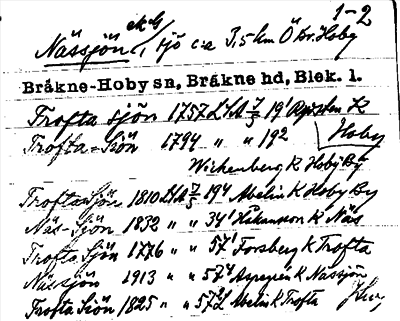 1-2
Nässjön, sjö c:a 3,5 km Ö Br. Hoby
Bräkne-Hoby sn, Bräkne hd, Blek. l.
Trofta sjön 1757 LMA 7/5 19¹ K
Trofta-Siön 1794 " " 19² Hoby
Wickenberg K Hoby By
Trofta Sjön 1810 LMA 7/5 19⁴ Abelin K Hoby By
Näs-Sjön 1832 " " 34¹ Håkansson K Näs
Trofta Sjön 1776 " " 57¹ Forsberg K Trofta
Nässjön 1913 " " 57 K Nässjön
Trofta Siön 1825 " " 57² Abelin K Trofta